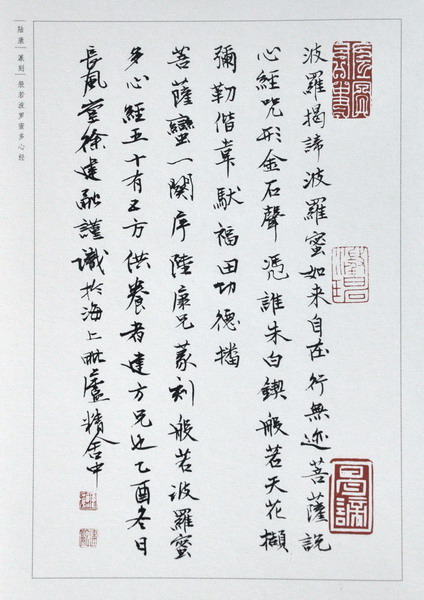 波羅揭諦波羅蜜如来自在行無迹菩薩説
心經咒形金石聲憑誰朱白鍥般若天花擷
彌勒偕韋馱福田功德播
菩薩蠻一闋序陸康兄篆刻般若波羅蜜
多心經五十有五方供養者建方兄也乙酉冬日
長風堂徐建融謹識於海上毗盧精舍中
陆康 篆刻 般若波罗蜜多心经